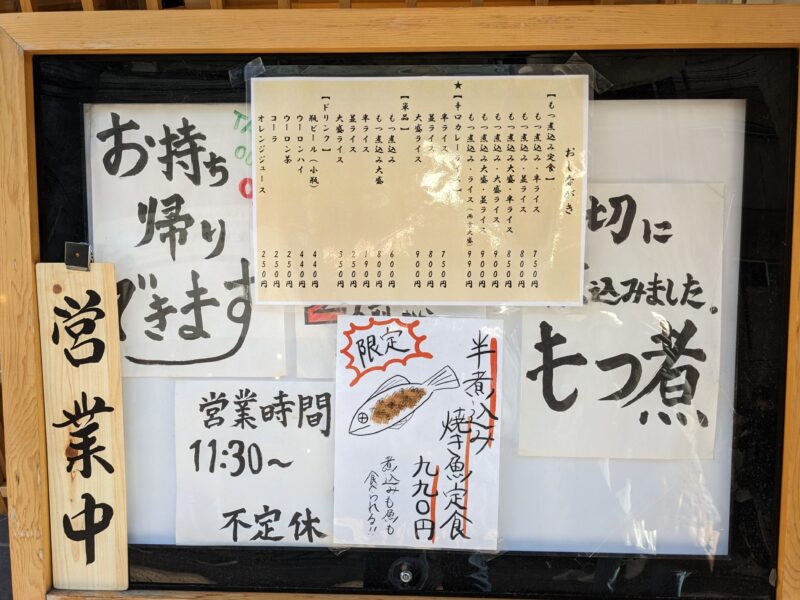 おしながき
【もつ煮込み定食】
もつ煮込み・半ライス 750円
もつ煮込み・並ライス 800円
もつ煮込み大盛・半ライス 850円
もつ煮込み・大盛ライス 900円
もつ煮込み大盛・並ライス 900円
もつ煮込み・ライス(両方大盛) 990円
★【辛口カレーライス】
半ライス 750円
並ライス 800円
大盛ライス 900円
【単品】
もつ煮込み 600円
もつ煮込み大盛 800円
半ライス 190円
並ライス 250円
大盛ライス 350円
【ドリンク】
瓶ビール(小瓶) 440円
ウーロンハイ 440円
ウーロン茶 250円
コーラ 250円
オレンジジュース 250円
お持ち
帰り
できます
切に
込みました。
もつ煮
限定
半煮込み
焼き魚定食
九九〇円
煮込みも魚も
食べられる!!
営業時間
11:30〜
不定休
営業中